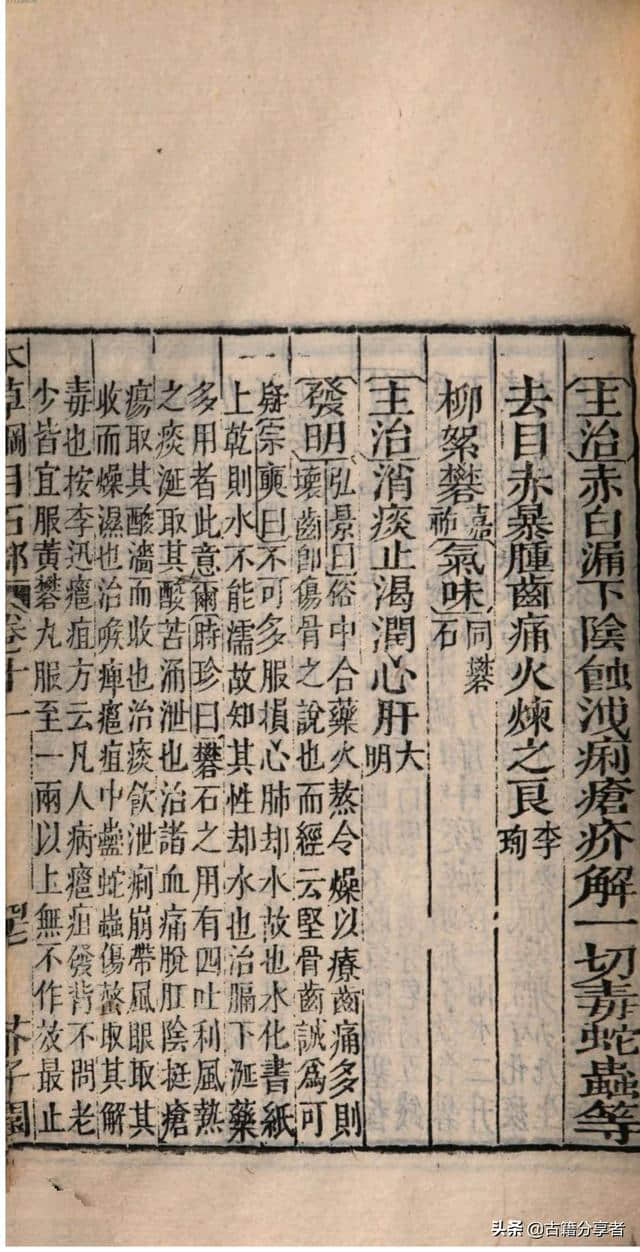 主治赤白漏下陰蝕洩痢瘡疥解一切毒蛇蟲等
去目赤暴腫齒痛火煉之良李珣
柳絮礬嘉祐氣味同礬石
主治消痰止渴潤心肝大明
發明弘景曰俗中合藥火熬令燥以療齒痛多則
壞齒卽傷骨之說也而經云堅骨齒誠爲可
疑宗奭曰不可多服損心肺却水故也水化書紙
上乾則水不能濡故知其性却水也治膈下涎藥
多用者此意爾時珍曰礬石之用有四吐利風熱
之痰涎取其酸苦涌泄也治諸血痛脫肛陰挺瘡
瘍取其酸濇而收也治痰飮泄痢崩帶風眼取其
收而燥濕也治喉痺癰疽中蠱蛇蟲傷螫取其解
毒也按李迅癰疽方云凡人病癰疽發背不問老
少皆宜服黃礬丸服至一兩以上無不作效最止
本草綱目石部 卷十一 芥子園
头条 @古籍分享者